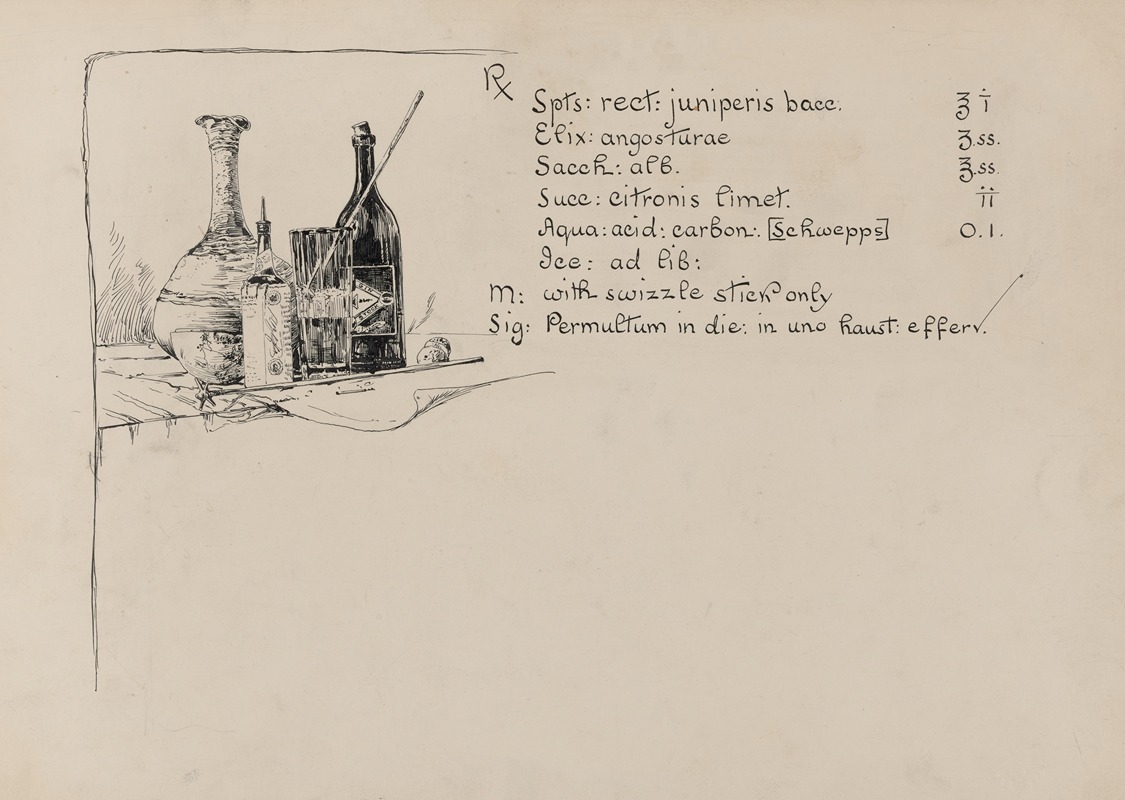 ℞
Spts: rect: juniperis bacc. ℥ i
Elix: angosturae ʒ.ss.
Sacch: alb. ℥.ss.
Succ: citronis limet. ii
Aqua: acid: carbon: [Schwepps] O.I.
Ice: ad lib:
M: with swizzle stick only
Sig: Permultum in die: in uno haust: efferv.